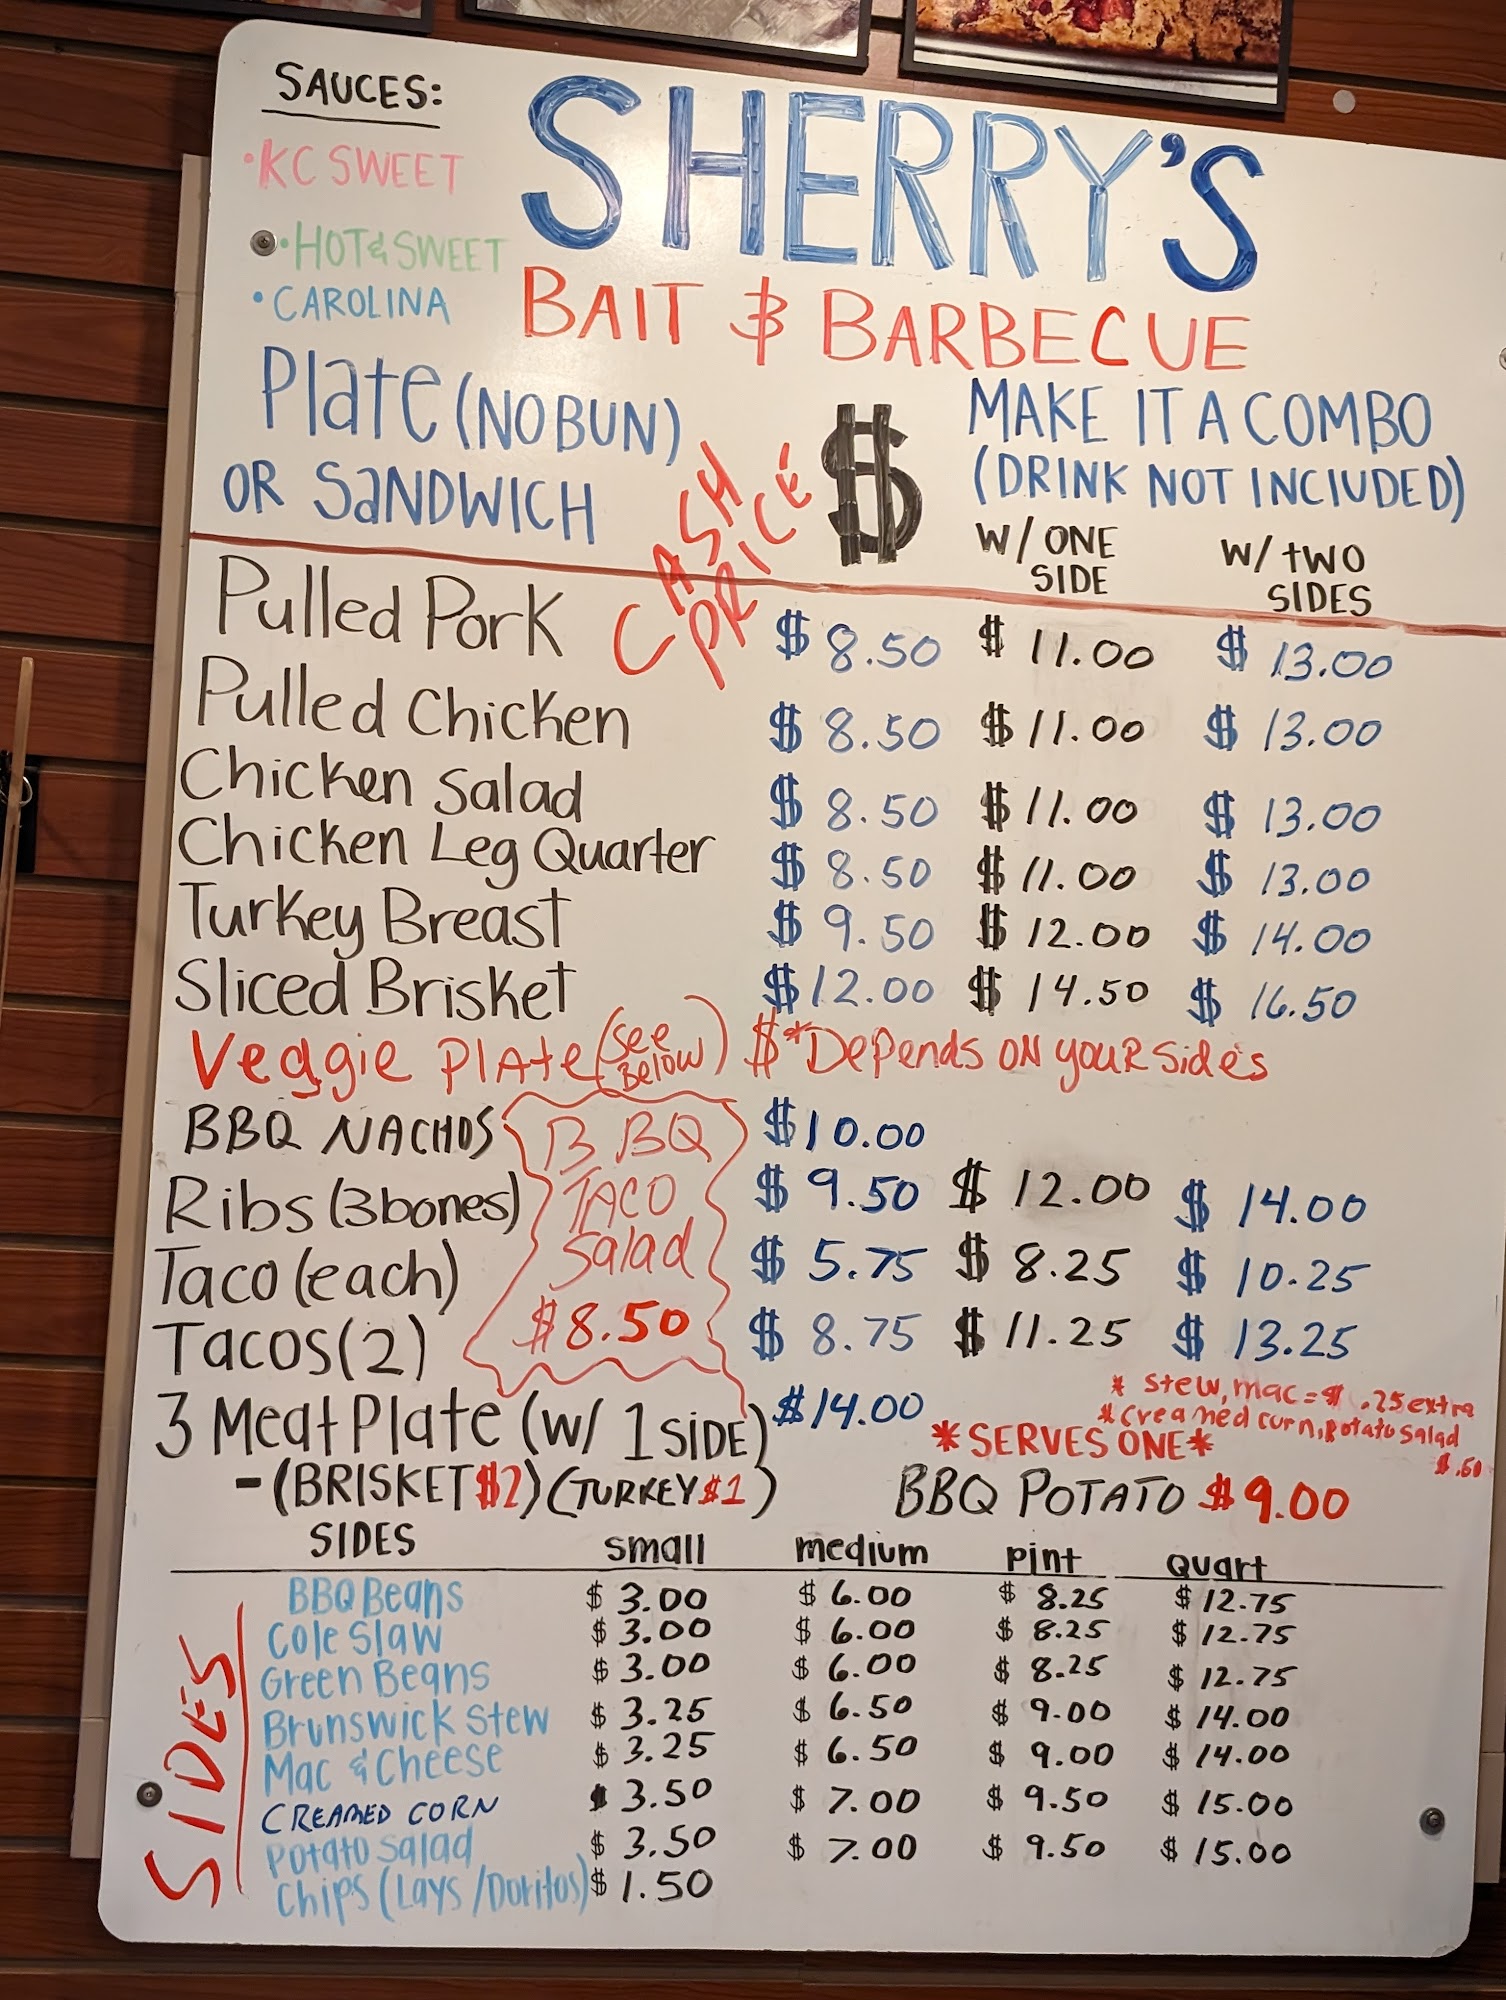 SAUCES:
• KC SWEET
• HOT & SWEET
• CAROLINA
SHERRY'S
BAIT & BARBECUE
Plate (NO BUN)
OR SANDWICH
CASH
PRICE
$
MAKE IT A COMBO
(DRINK NOT INCLUDED)
W/ ONE SIDE W/ TWO SIDES
Pulled Pork $ 8.50 $ 11.00 $ 13.00
Pulled Chicken $ 8.50 $ 11.00 $ 13.00
Chicken Salad $ 8.50 $ 11.00 $ 13.00
Chicken Leg Quarter $ 8.50 $ 11.00 $ 13.00
Turkey Breast $ 9.50 $ 12.00 $ 14.00
Sliced Brisket $ 12.00 $ 14.50 $ 16.50
Veggie Plate (see Below) $ *Depends on your sides
BBQ NACHOS $ 10.00
Ribs (3 bones) $ 9.50 $ 12.00 $ 14.00
Taco (each) $ 5.75 $ 8.25 $ 10.25
Tacos (2) $ 8.75 $ 11.25 $ 13.25
BBQ
TACO
Salad
$8.50
3 Meat Plate (w/ 1 SIDE) $14.00
- (BRISKET $2) (TURKEY $1)
* Stew, mac = $ .25 extra
* Creamed corn, potato salad
$ .50
*SERVES ONE*
BBQ POTATO $9.00
SIDES small medium pint Quart
SIDES
BBQ Beans $ 3.00 $ 6.00 $ 8.25 $ 12.75
Cole Slaw $ 3.00 $ 6.00 $ 8.25 $ 12.75
Green Beans $ 3.00 $ 6.00 $ 8.25 $ 12.75
Brunswick Stew $ 3.25 $ 6.50 $ 9.00 $ 14.00
Mac & Cheese $ 3.25 $ 6.50 $ 9.00 $ 14.00
CREAMED CORN $ 3.50 $ 7.00 $ 9.50 $ 15.00
Potato Salad $ 3.50 $ 7.00 $ 9.50 $ 15.00
Chips (Lays / Doritos) $ 1.50